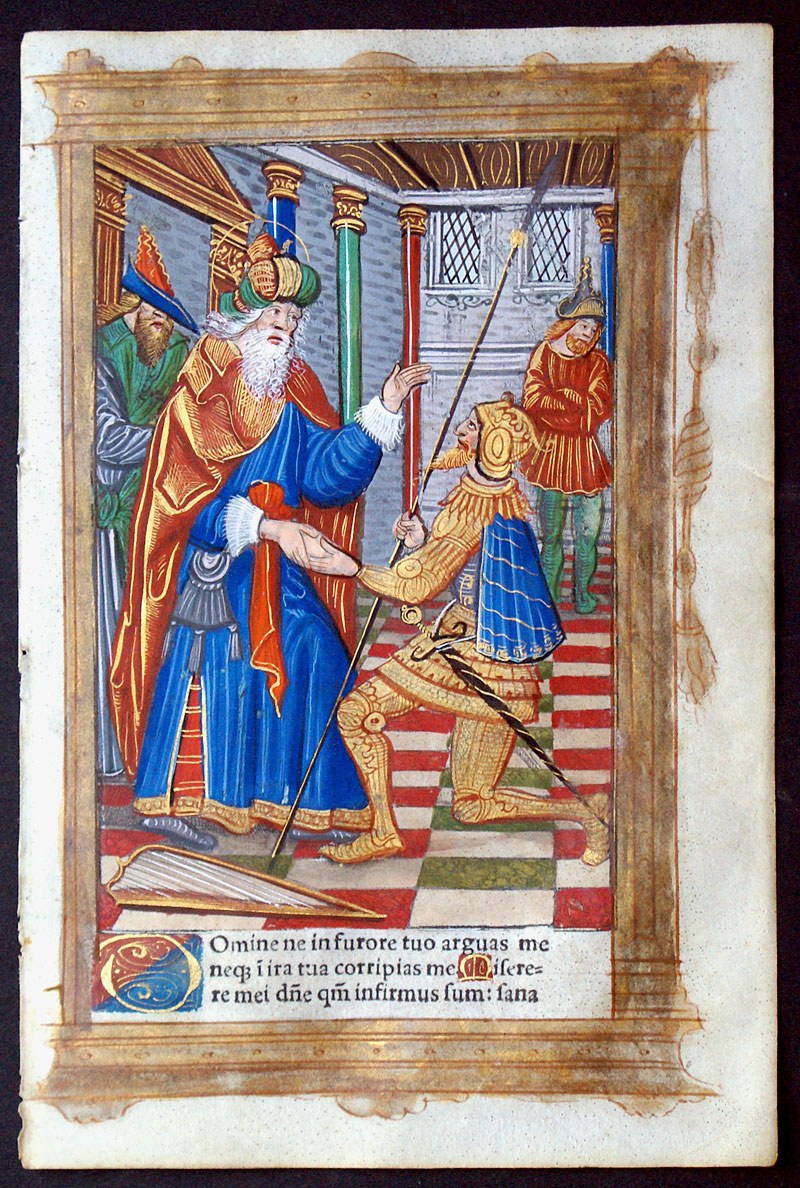 Domine ne in furore tuo arguas me
neqꝫ ī ira tua corripias me. Misere=
re mei dn̄e qm̄ infirmus sum: sana